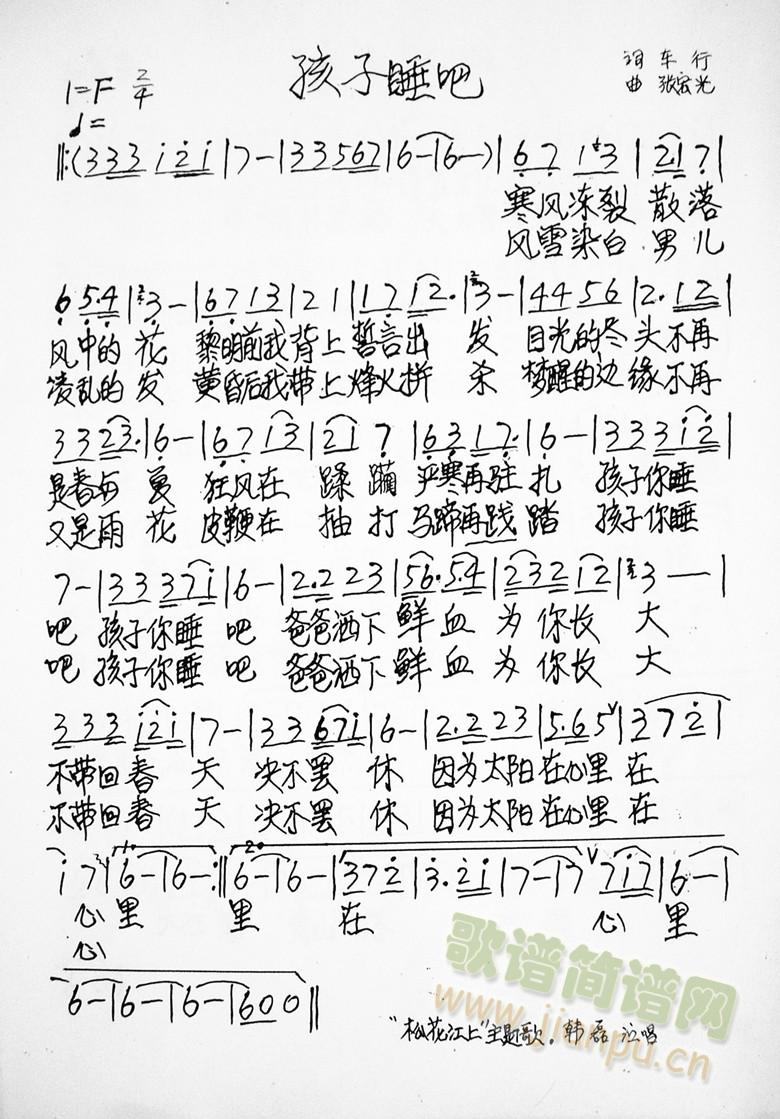 孩子睡吧
词 车 行
曲 张宏光
1=F 2/4
♩=
‖:(333 i2i|7-|33567|6-|6-)|67 1#3|2·17|
寒风冻裂 散落
风雪染白 男儿
65·4|3-|6713|21|1712·|3-|4456|2·12|
风中的花 黎明前我背上誓言出 发 目光的尽头不再
凌乱的发 黄昏后我带上烽火拼 杀 梦醒的边缘不再
3323·|6-|6713|2i7|6317·|6-|333i2|
是春与夏 狂风在 蹂躏 严寒再驻扎 孩子你睡
又是雨花 皮鞭在 抽打 马蹄再践踏 孩子你睡
7-|3337i|6-|2·223|56·5·4|23212|3--|
吧 孩子你睡 吧 爸爸洒下 鲜血 为你长 大
吧 孩子你睡 吧 爸爸洒下 鲜血 为你长 大
333i2i|7-|3367i|6-|2·223|5·65∨|372|
不带回春 天 决不罢 休 因为太阳在心里 在
不带回春 天 决不罢 休 因为太阳在心里 在
i7|1.6-|6-:‖2.6-|6-|372|3·2i|7-|7∨7i7|6-|
心 里 里 在 心 里
心
6-|6-|6-|600‖
"松花江上"主题歌. 韩磊 演唱
歌谱简谱网
www.jianpu.cn